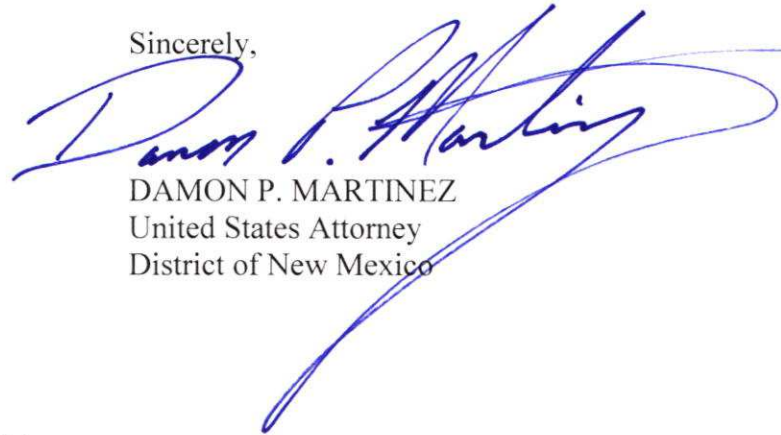 Sincerely,
Damon P. Martinez
DAMON P. MARTINEZ
United States Attorney
District of New Mexico